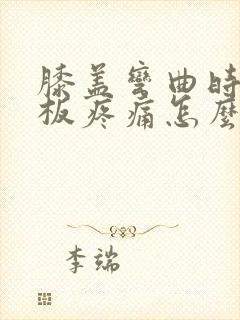 膝盖彎曲時
板疼痛怎麼
李端